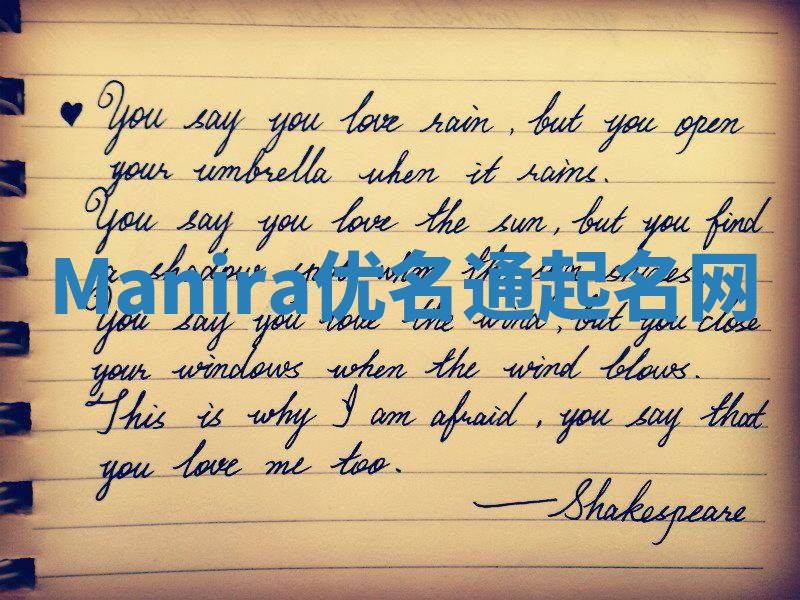 ♥ You say you love rain, but you open
your umbrella when it rains.
You say you love the sun, but you find
a shadow spot when the sun shines
Manira优名通起名网
You say you love the wind, but you close
your windows when the wind blows.
This is why I am afraid, you say that
you love me too.
—Shakespeare